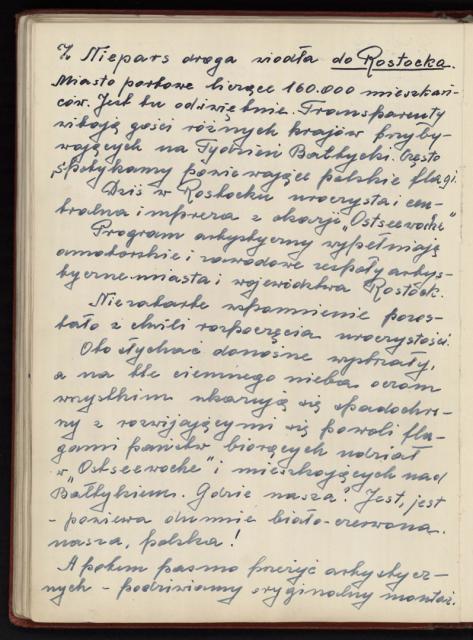 7/ Niepars droga wiodła do Rostocka.
Miasto portowe liczące 160.000 mieszkań-
ców. Jest tu odświętnie. Transparenty
witają gości różnych krajów przyby-
wających na Tydzień Bałtycki. Często
spotykamy powiewające polskie flagi.
Dziś w Rostocku uroczysta i cen-
tralna impreza z okazji „Ostseewoche"
Program artystyczny wypełniają
amatorskie i zawodowe zespoły artys-
tyczne miasta i województwa Rostock.
Niezatarte wspomnienie pozos-
tało z chwili rozpoczęcia uroczystości.
Oto słychać donośne wystrzały,
a na tle ciemnego nieba oczom
wszystkim ukazują się spadochro-
ny z rozwijającymi się powoli fla-
gami państw biorących udział
w „Ostseewoche" i mieszkających nad
Bałtykiem. Gdzie nasza? Jest, jest
- powiewa dumnie biało-czerwona.
nasza, polska!
A potem pasmo przeżyć artystycz-
nych - podziwiamy oryginalny montaż.